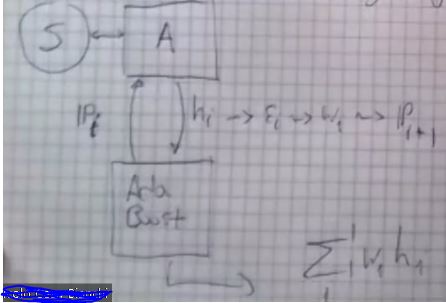 S ↔ A
ℙᵢ hᵢ → εᵢ → wᵢ → ℙᵢ₊₁
Ada
Boost
∑ wᵢ hᵢ